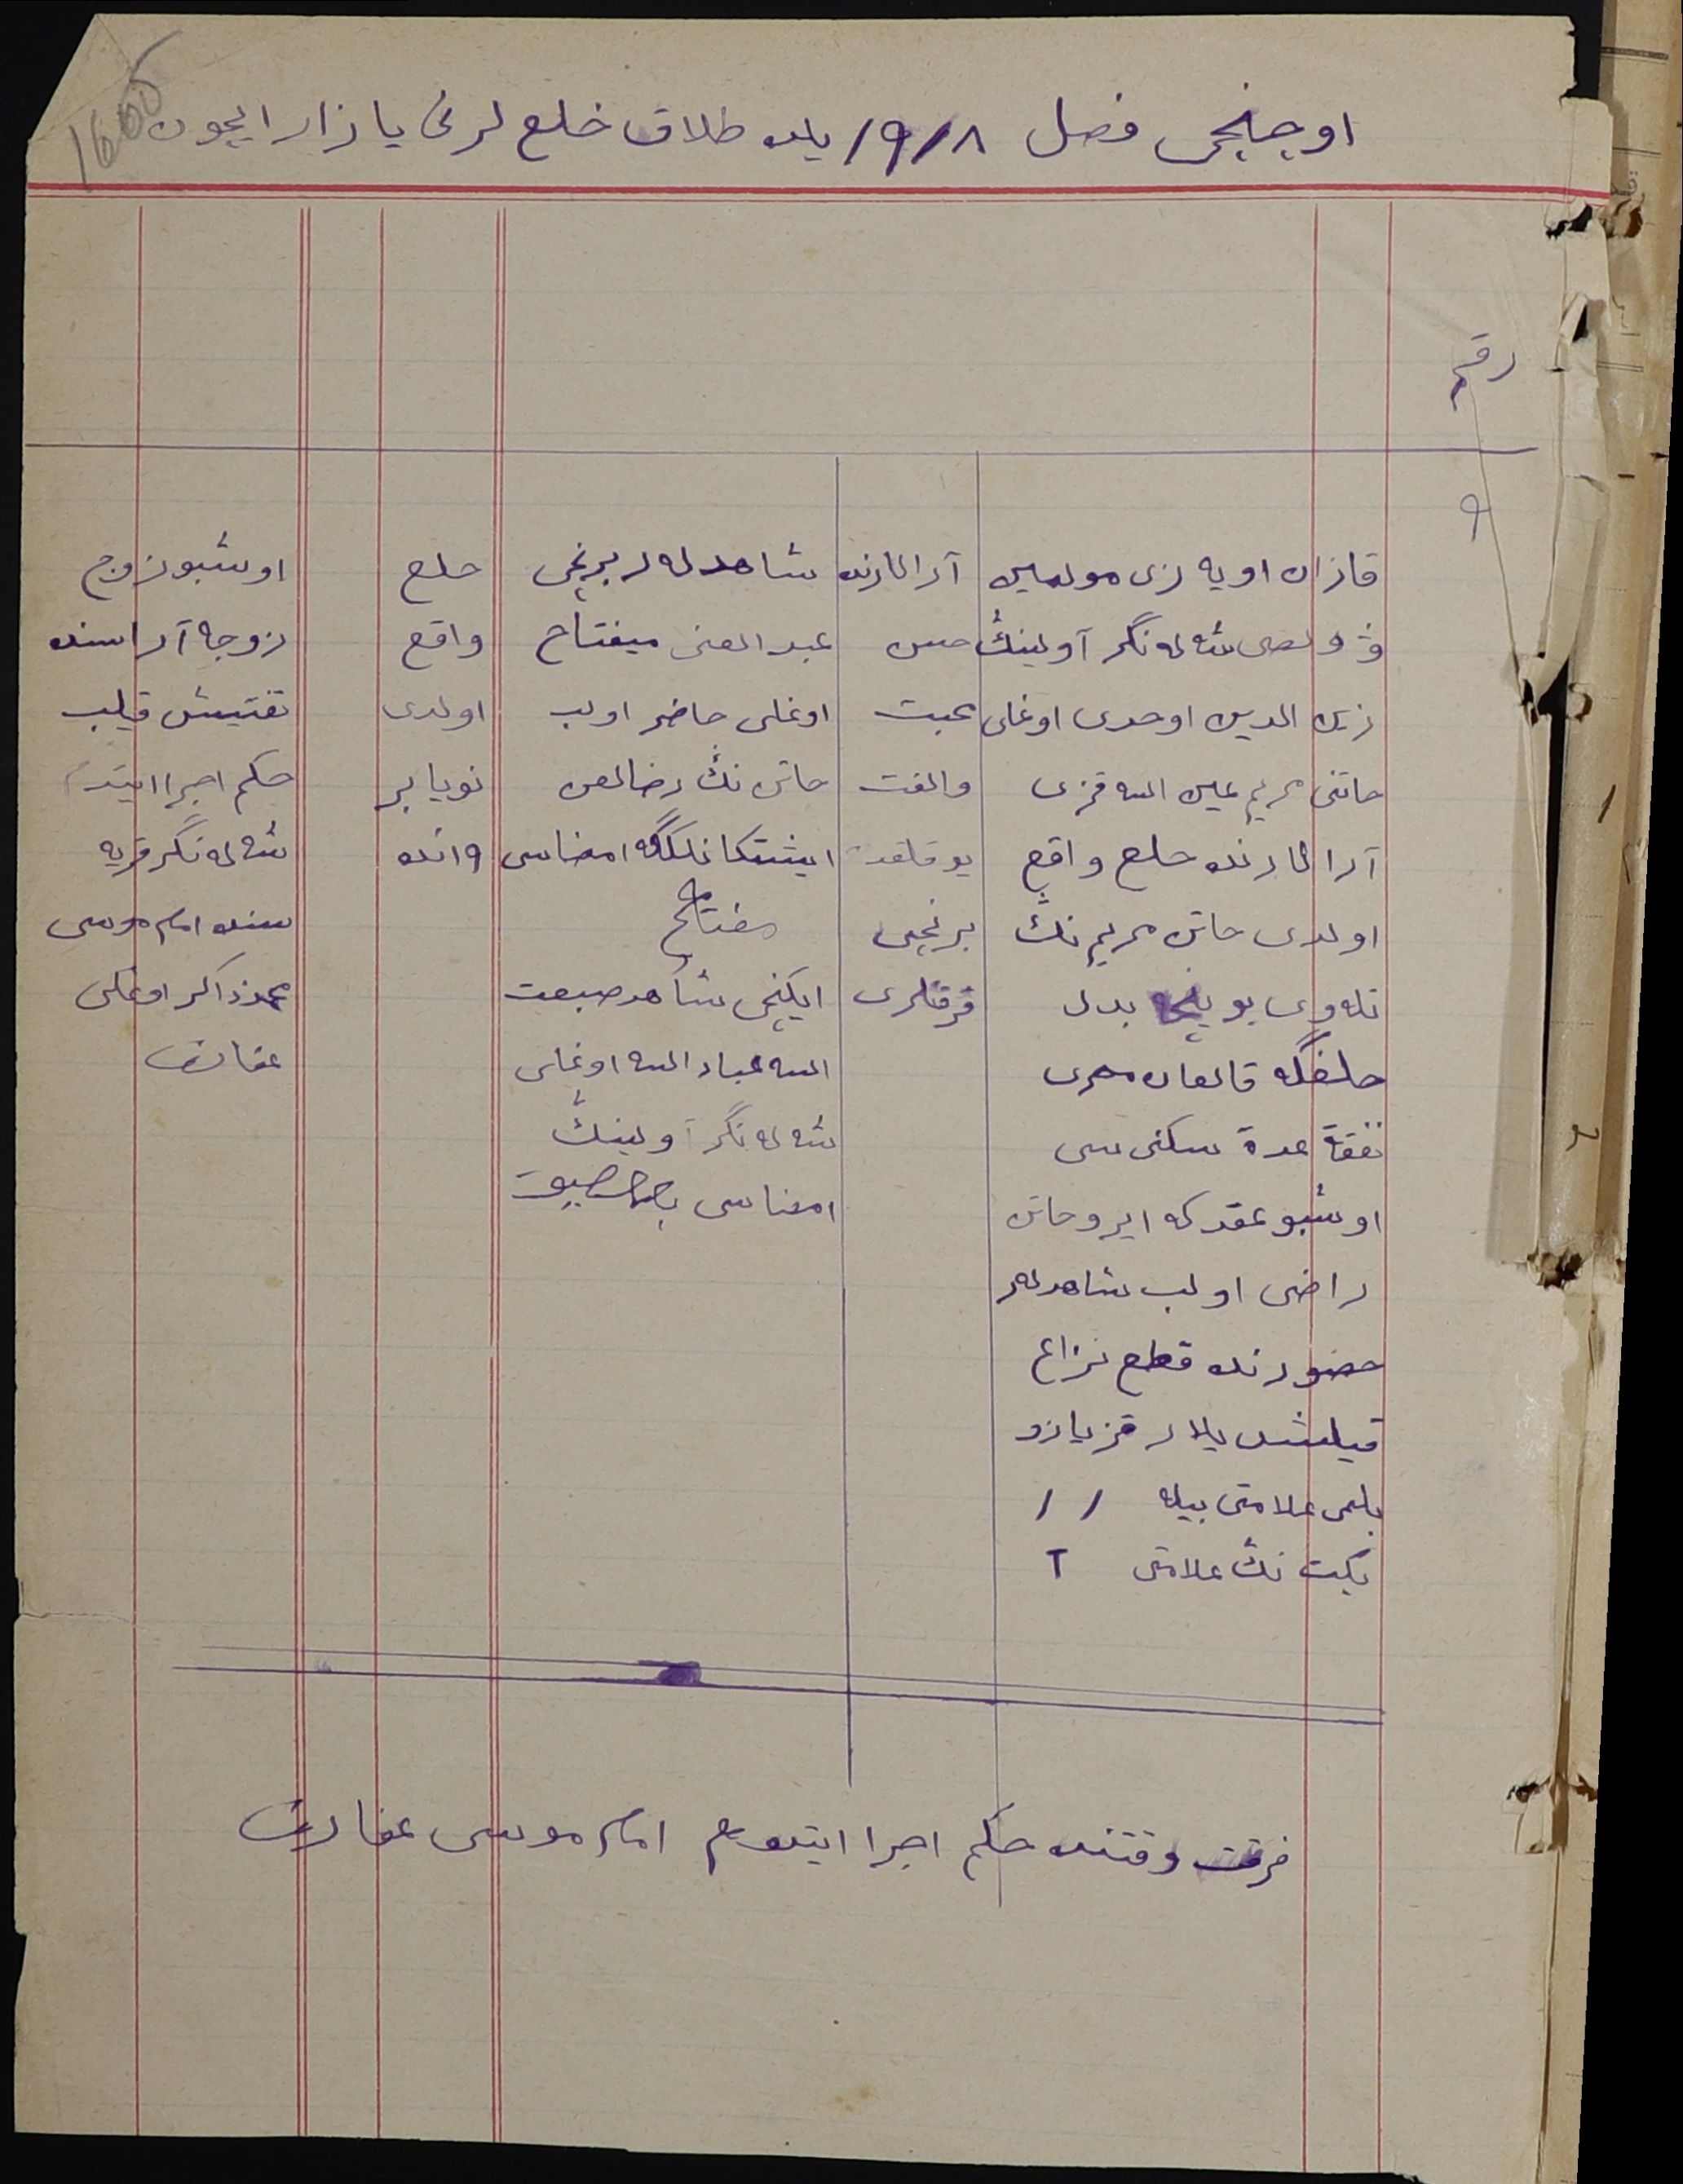 اوچنچی فصل ۱۹۱۸ یلده طلاق خلع لرنی یازار ایچون
1605
رقم
۹
قازان اویه زی مولمین
ۋولصی شەلەنگر آولینڭ
زین الدین اوحدی اوغلی
خاتنی مریم عین الله قزی
آرالارنده خلع واقع
اولدی خاتن مریم نڭ
تلەوی بوینچه بدل
خلعگه قالغان مهری
نفقة عدة سکنی سی
اوشبو عقدکه ایر و خاتن
راضی اولب شاهدلەر
حضورنده قطع نزاع
قیلشدیلار قز یازو
بلمی علامتی بیله / /
یکت نڭ علامتی T
آرالارنده
حسن
محبت
والفت
یوقلقدن
برنچی
فرقتلری
شاهدلەر برنچی
عبد الغنی میفتاح
اوغلی حاضر اولب
خاتن نڭ رضالغن
ایشتکانلگگه امضاسی
مفتاح
ایکنچی شاهد صبغت
الله عباد الله اوغلی
شەلەنگر آولینڭ
امضاسی صبغت
خلع
واقع
اولدی
نویابر
۹ انده
اوشبو زوج
زوجه آراسنده
تفتیش قیلب
حکم اجرا ایتدم
شەلەنگر قریه
سنده امام موسی
محمدذاکر اوغلی
غفارف
فرقت وقتنده حکم اجرا ایتدم امام موسی غفارف